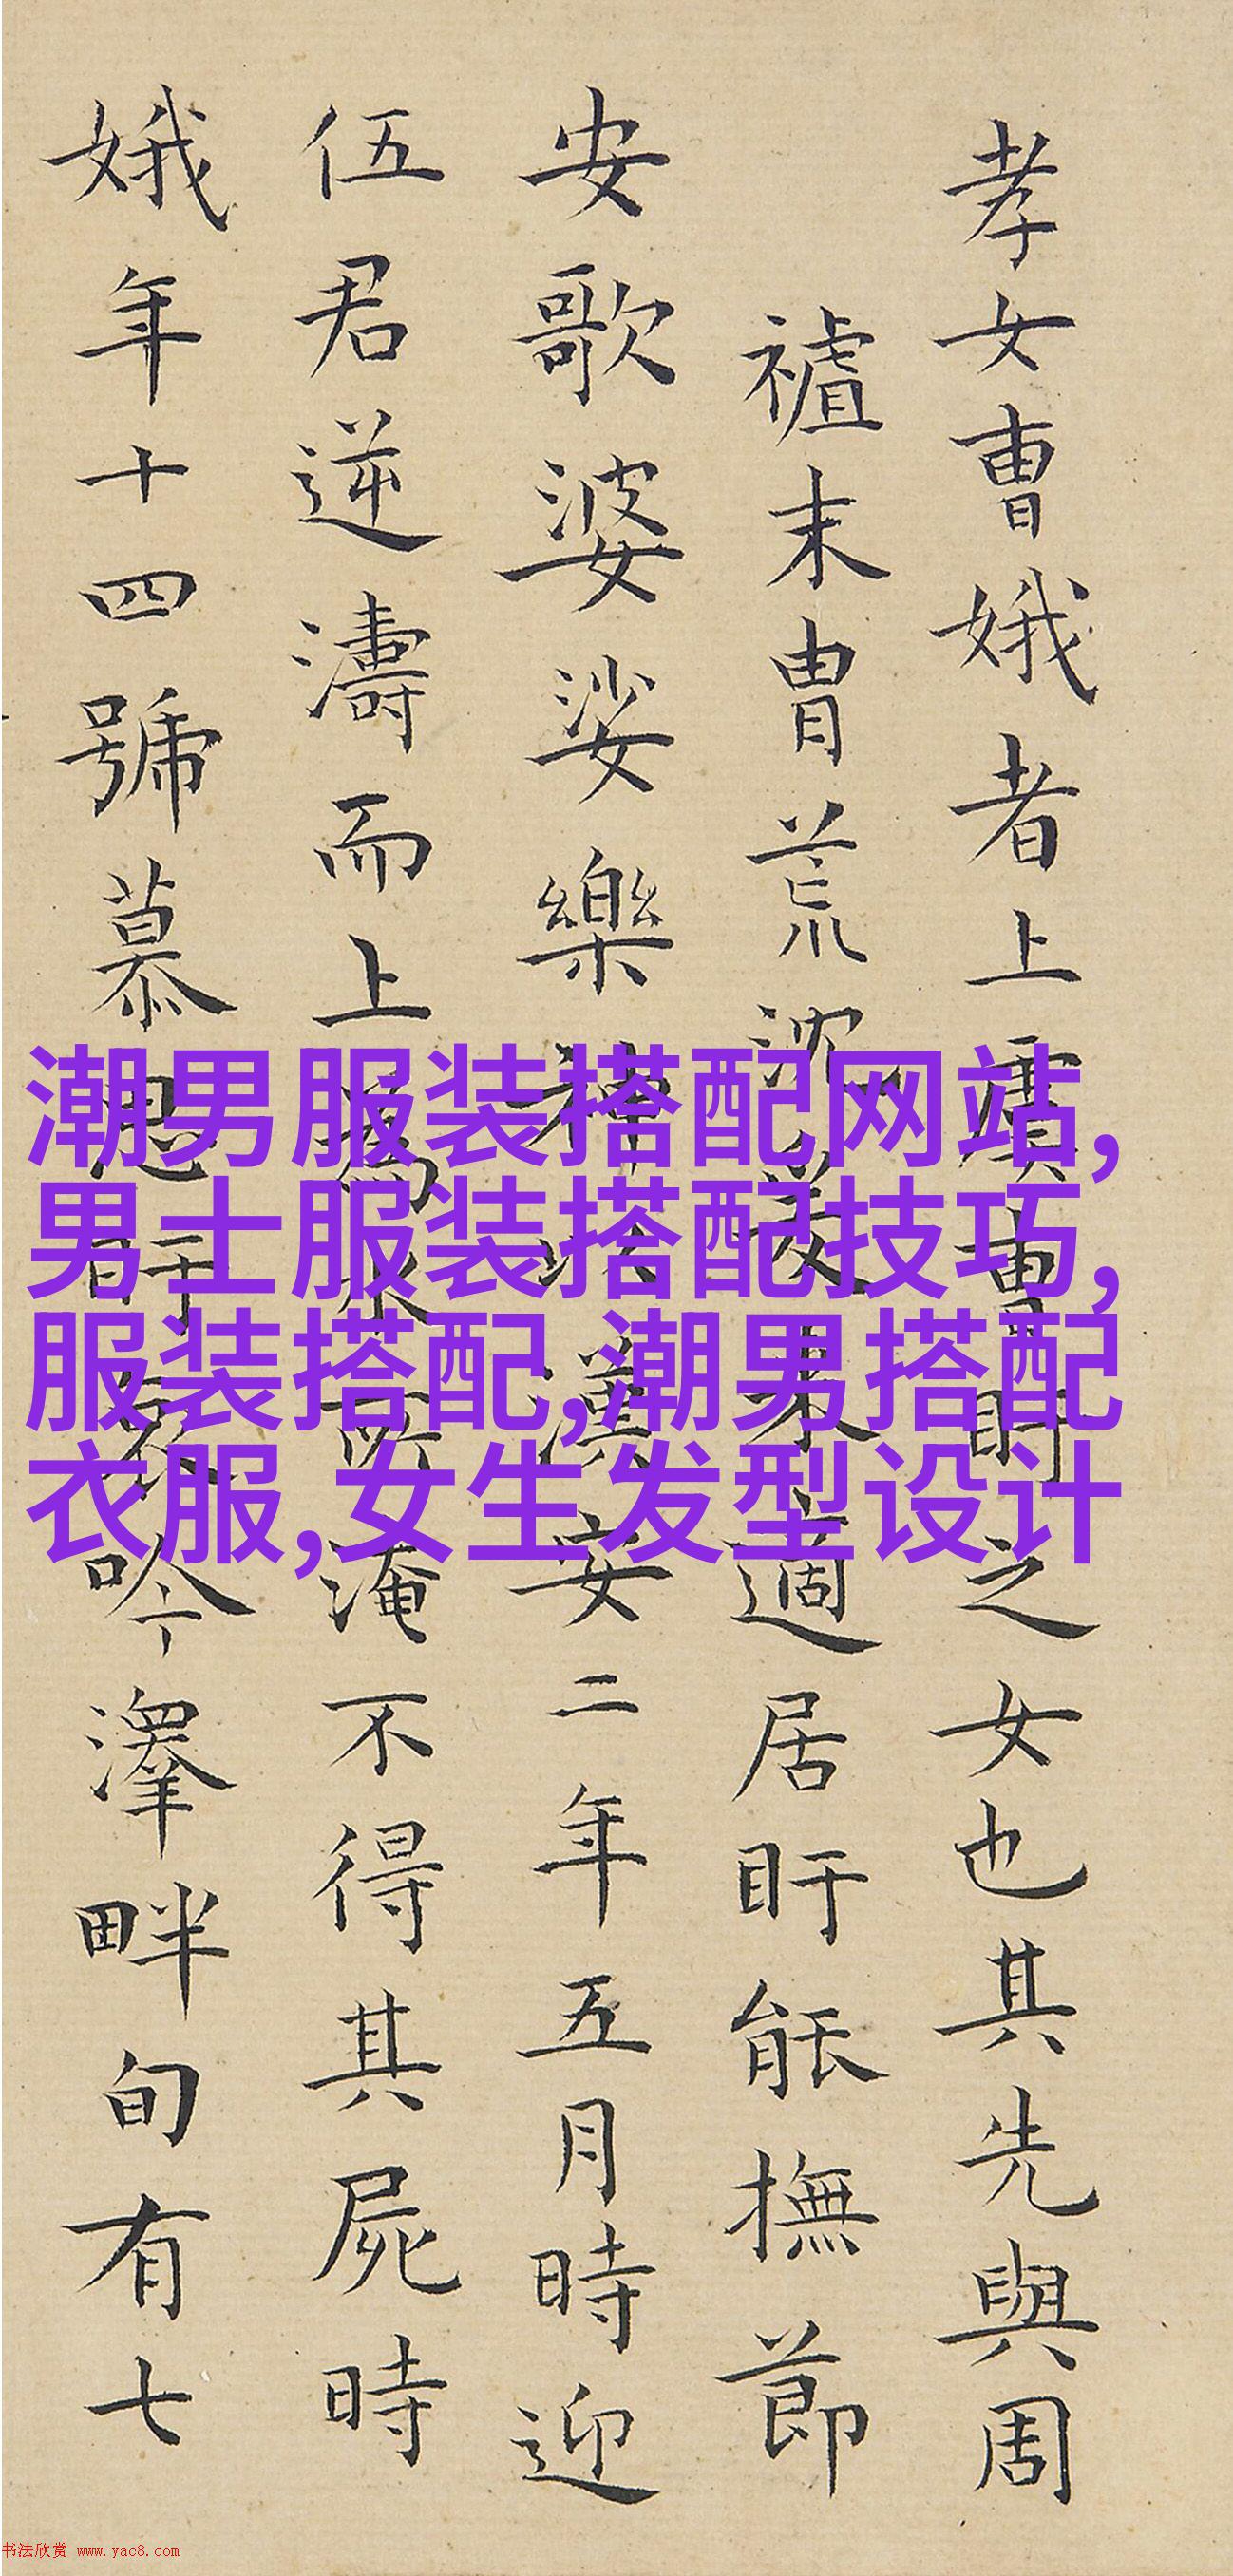 孝女曹娥者上虞曹盱之女也其先與周
禇末胄荒沈爰来適居盱能撫節
安歌婆娑樂神以漢安二年五月時迎
伍君逆濤而上為水所淹不得其屍時
娥年十四號慕思盱哀吟澤畔旬有七
潮男服装搭配网站,
男士服装搭配技巧,
服装搭配,潮男搭配
衣服,女生发型设计
书法欣赏 www.yac8.com